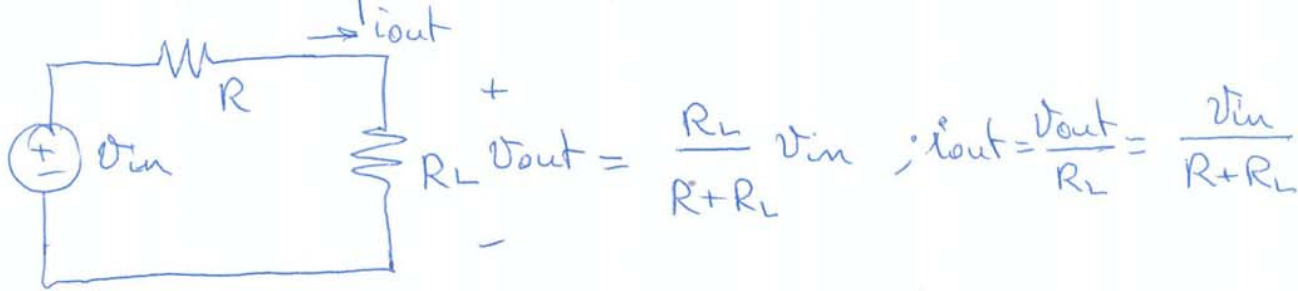 iout
R
+
Vin
RL
+
Vout = RL / (R+RL) Vin ; iout = Vout / RL = Vin / (R+RL)
-